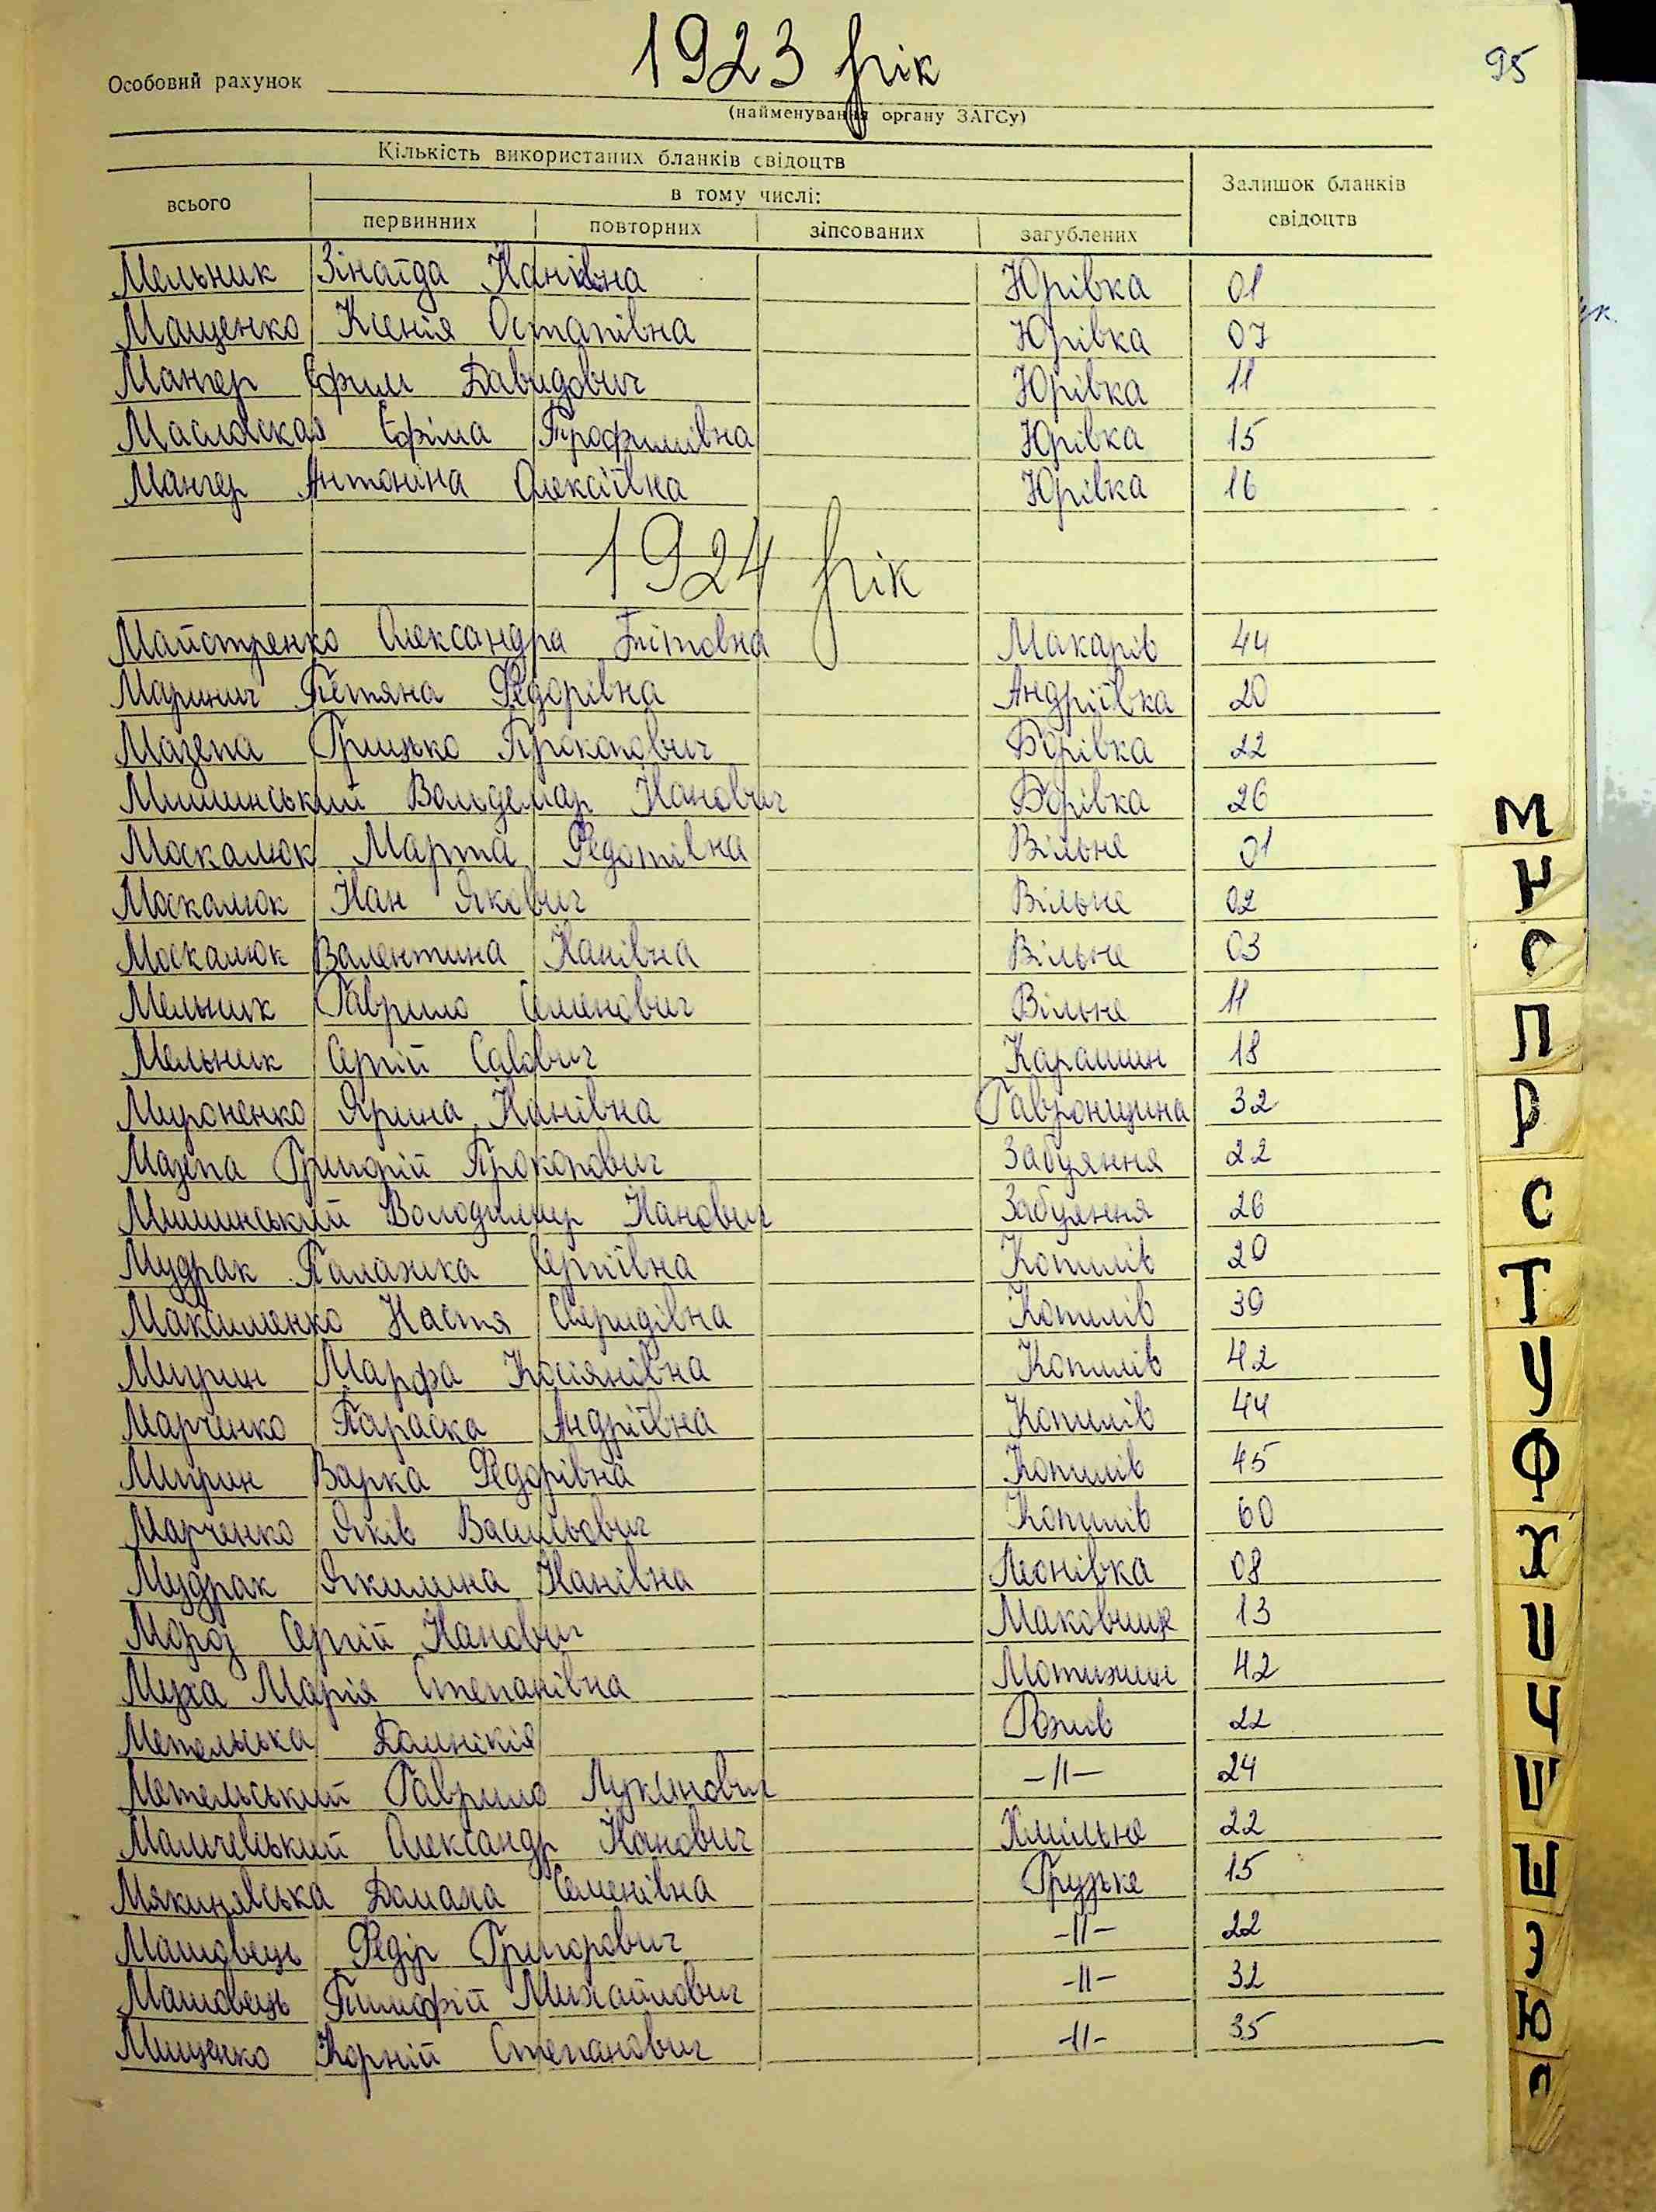 1923 рік
95
Особовий рахунок
(найменування органу ЗАГСу)
Кількість використаних бланків свідоцтв
Залишок бланків свідоцтв
всього
в тому числі:
первинних повторних зіпсованих загублених
Мельник Зінаїда Іванівна Юрівка 01
Мащенко Ксенія Остапівна Юрівка 07
Мангер Єфим Давидович Юрівка 11
Масловская Єфіма Трофимівна Юрівка 15
Мангер Антоніна Олексіївна Юрівка 16
1924 рік
Майстренко Олександра Тітовна Макарів 44
Маринич Тетяна Федорівна Андріївка 20
Мазепа Грицько Прокопович Борівка 22
Мишинський Вальдемар Іванович Борівка 26
Москалюк Марта Федотівна Вільне 01
Москалюк Іван Якович Вільне 02
Москалюк Валентина Іванівна Вільне 03
Мельник Гаврило Семенович Вільне 11
Мельник Сергій Савович Карашин 18
Мироненко Ярина Іванівна Гавронщина 32
Мазепа Григорій Прокопович Забуяння 22
Мишинський Володимир Іванович Забуяння 26
Мудрак Палажка Сергіївна Копилів 20
Максименко Настя Свиридівна Копилів 30
Марфа Касіянівна Копилів 42
Марченко Параска Андріївна Копилів 44
Варка Федорівна Копилів 45
Марченко Яків Васильович Копилів 60
Мудрак Якилина Іванівна Леонівка 08
Мороз Сергій Іванович Маковище 13
Муха Марія Степанівна Мотижин 42
Метельська Домнікія Рожів 22
Метельський Гаврило Лук'янович -11- 24
Маличевський Олександр Іванович Хмільне 22
Мякинявська Домаха Семенівна Грузьке 15
Машовець Федір Григорович -11- 22
Машовець Тимофій Михайлович -11- 32
Мищенко Корній Степанович -11- 35
М
Н
О
П
Р
С
Т
У
Ф
Х
Ц
Ч
Ш
Щ
Э
Ю